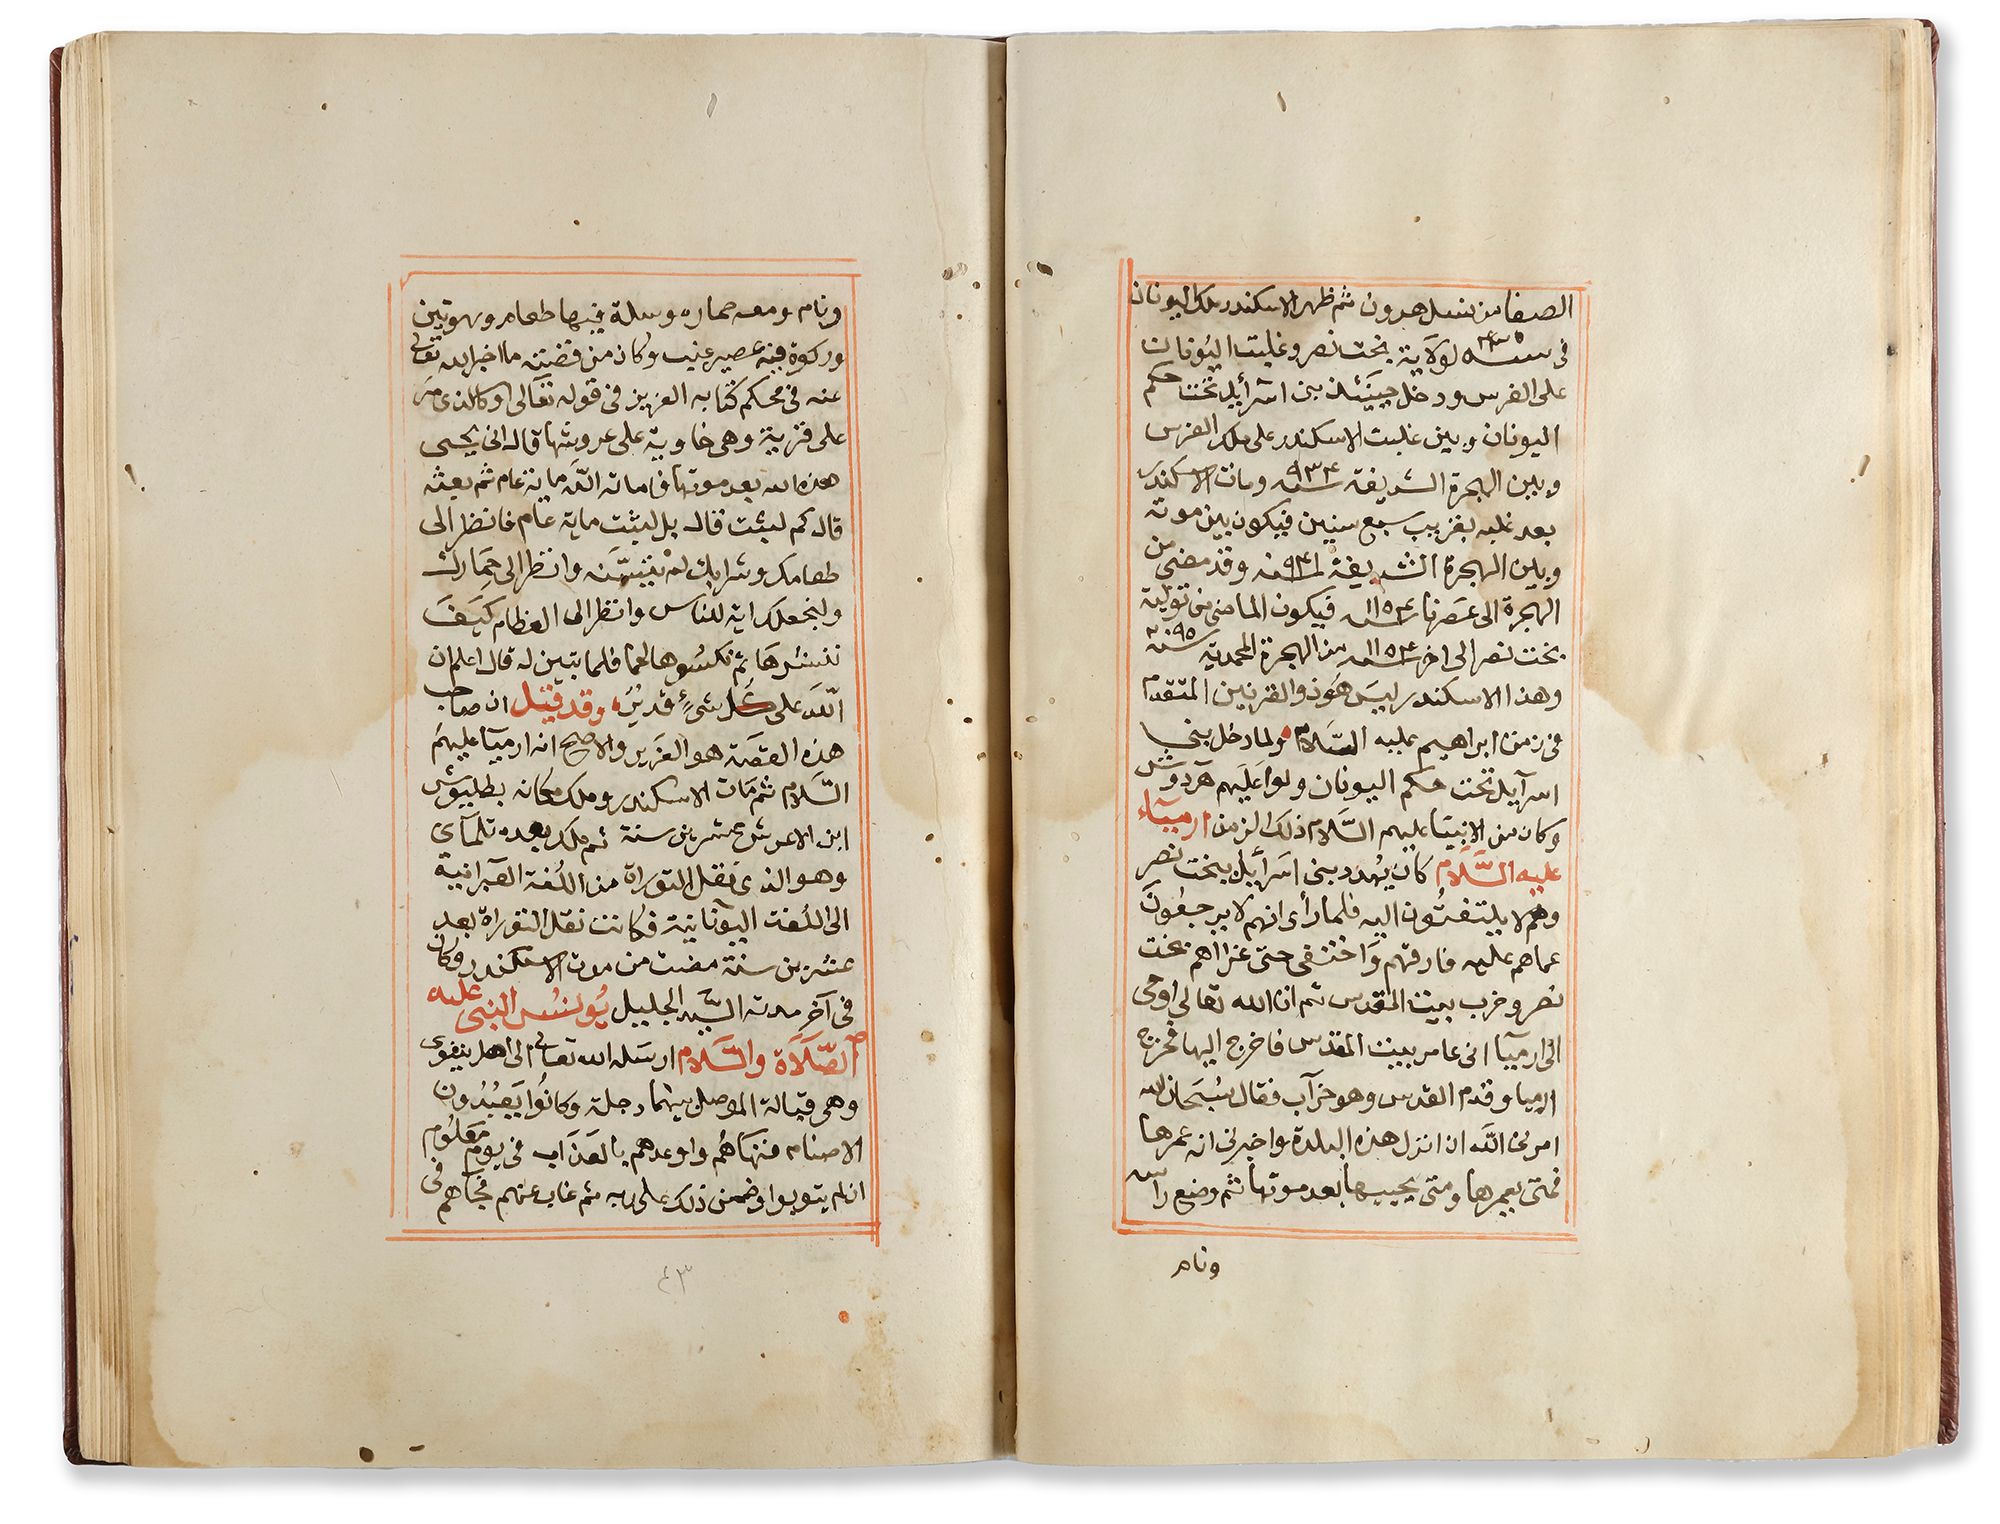 الصفا من نسل هرون ثم ظهر الاسكندر ملك اليونان
فى سنه ٤٣٥ لولاية بخت نصر وغلبت اليونان
على الفرس ودخل حينئذ بنى اسرآئيل تحت حكم
اليونان وبين غلبت الاسكندر على ملك الفرس
وبين الهجرة الشريفة ٩٣٤ سنه ومات الاسكندر
بعد غلبه بقريب سبع سنين فيكون بين موته
وبين الهجرة الشريفة سنه وقد مضى من
الهجرة الى عصرنا ١١٥٤ سنه فيكون الماضى من تولية
بخت نصر الى اخر سنه ١١٥٤ من الهجرة المحمدية سنه ٢٠٩٥
وهذا الاسكندر ليس هو ذو القرنين المتقدم
فى زمن ابراهيم عليه السلام ولما دخل بنى
اسرآيل تحت حكم اليونان ولوا عليهم هردوش
وكان من الانبيا عليهم السلام ذلك الزمن ارميآء
عليه السلام كان يهدد بنى اسرآئيل ببخت نصر
وهم لا يلتفتون اليه فلما رأى انهم لا يرجعون
عما هم عليه فارقهم واختفى حتى غزاهم بخت
نصر وخرب بيت المقدس ثم ان الله تعالى اوحى
الى ارميآ انى عامر ببيت المقدس فاخرج اليها فخرج
ارميا وقدم القدس وهو خرآب فقال سبحان الله
امرنى الله ان انزل هذه البلدة واخبرنى انه عمرها
فمتى يعمرها ومتى يحييها بعد موتها ثم وضع راسه
ونام
ونام ومعه حماره وسلة فيها طعام وهو تين
وركوة فيه عصير عنب وكان من قصته ما اخبر الله تعالى
عنه فى محكم كتابه العزيز فى قوله تعالى او كالذى مر
على قرية وهى خاوية على عروشها قال انى يحيى
هذه الله بعد موتها فاماته الله ماية عام ثم بعثه
قال كم لبثت قال بل لبثت ماية عام فانظر الى
طعامك وشرابك لم يتسنه وانظر الى حمارك
ولنجعلك اية للناس وانظر الى العظام كيف
ننشزها ثم نكسوها لحما فلما تبين له قال اعلم ان
الله على كل شىء قدير وقد قيل ان صاحب
هذه القصة هو العزير والاصح انه ارميآ عليهم
السلام ثم مات الاسكندر وملك مكانه بطليوش
ابن الاعرش عشرين سنة ثم ملك بعده تلمآى
وهو الذى نقل التوراة من اللغة العبرانية
الى اللغت اليونانية فكانت نقل التوراة بعد
عشرين سنة مضت من موت الاسكندر وكان
فى آخر مدته السيد الجليل يونس النبى عليه
الصلاة والسلام ارسله الله تعالى الى اهل نينوى
وهى قبالة الموصل بينهما دجلة وكانوا يعبدون
الاصنام فنهاهم واوعدهم بالعذاب فى يوم معلوم
ان لم يتوبوا وضمن ذلك على ربه ثم غاب عنهم فجآهم فى
٤٣